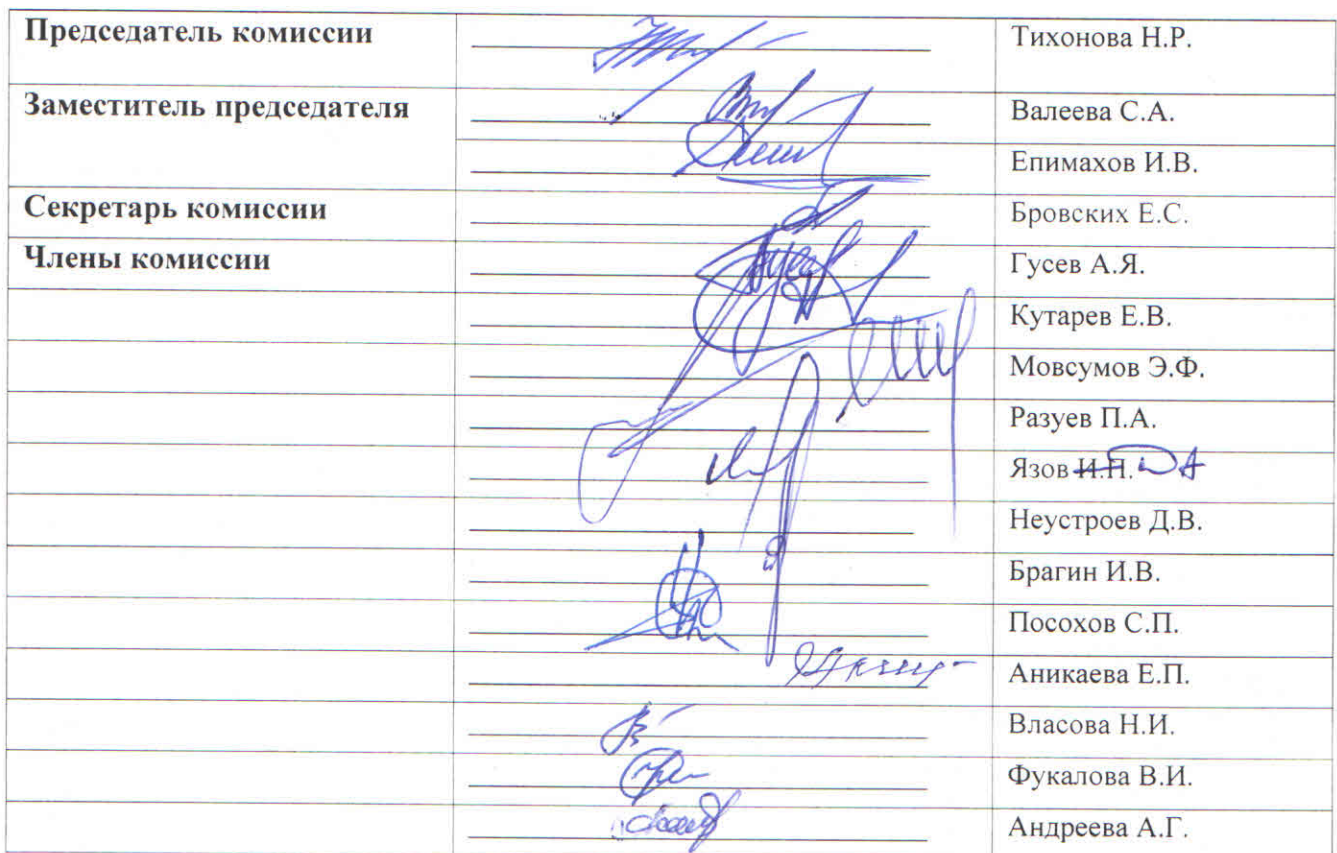 Председатель комиссии Тихонова Н.Р.
Заместитель председателя Валеева С.А.
Епимахов И.В.
Секретарь комиссии Бровских Е.С.
Члены комиссии Гусев А.Я.
Кутарев Е.В.
Мовсумов Э.Ф.
Разуев П.А.
Язов И.П. Д А
Неустроев Д.В.
Брагин И.В.
Посохов С.П.
Аникаева Е.П.
Власова Н.И.
Фукалова В.И.
Андреева А.Г.